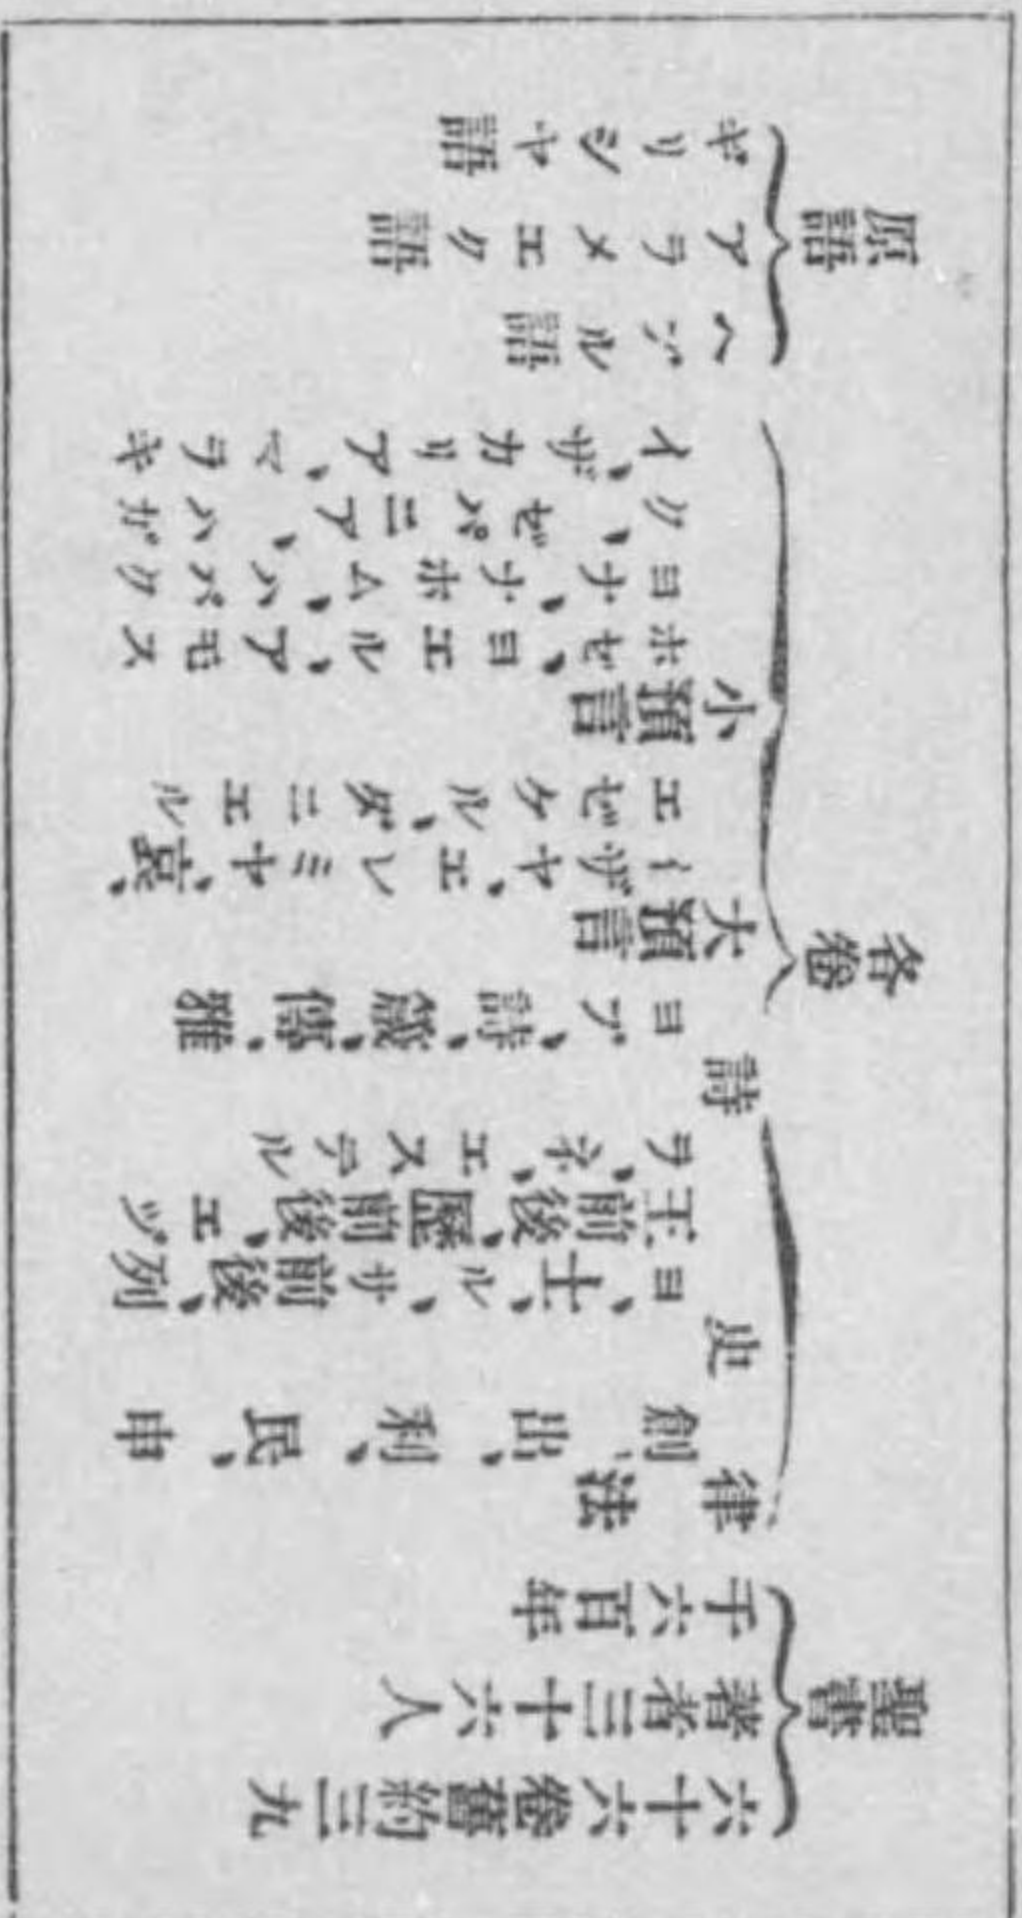 聖書
六十六卷舊約三九
著者三十六人
千六百年
各卷
律法
創、出、利、民、申
史
ヨ、士、ル、サ前後、列
王前後、歷前後、エヅ
ラ、ネ、エステル
詩
ヨブ、詩、箴、傳、雅
大預言
イザヤ、エレミヤ、哀、
エゼケル、ダニエル
小預言
ホセ、ヨエル、アモス
ヨナ、ナホム、ハバク
ク、ゼパニア、ハガ
イ、ザカリア、マラキ
原語
ヘブル語
アラメエク語
ギリシヤ語